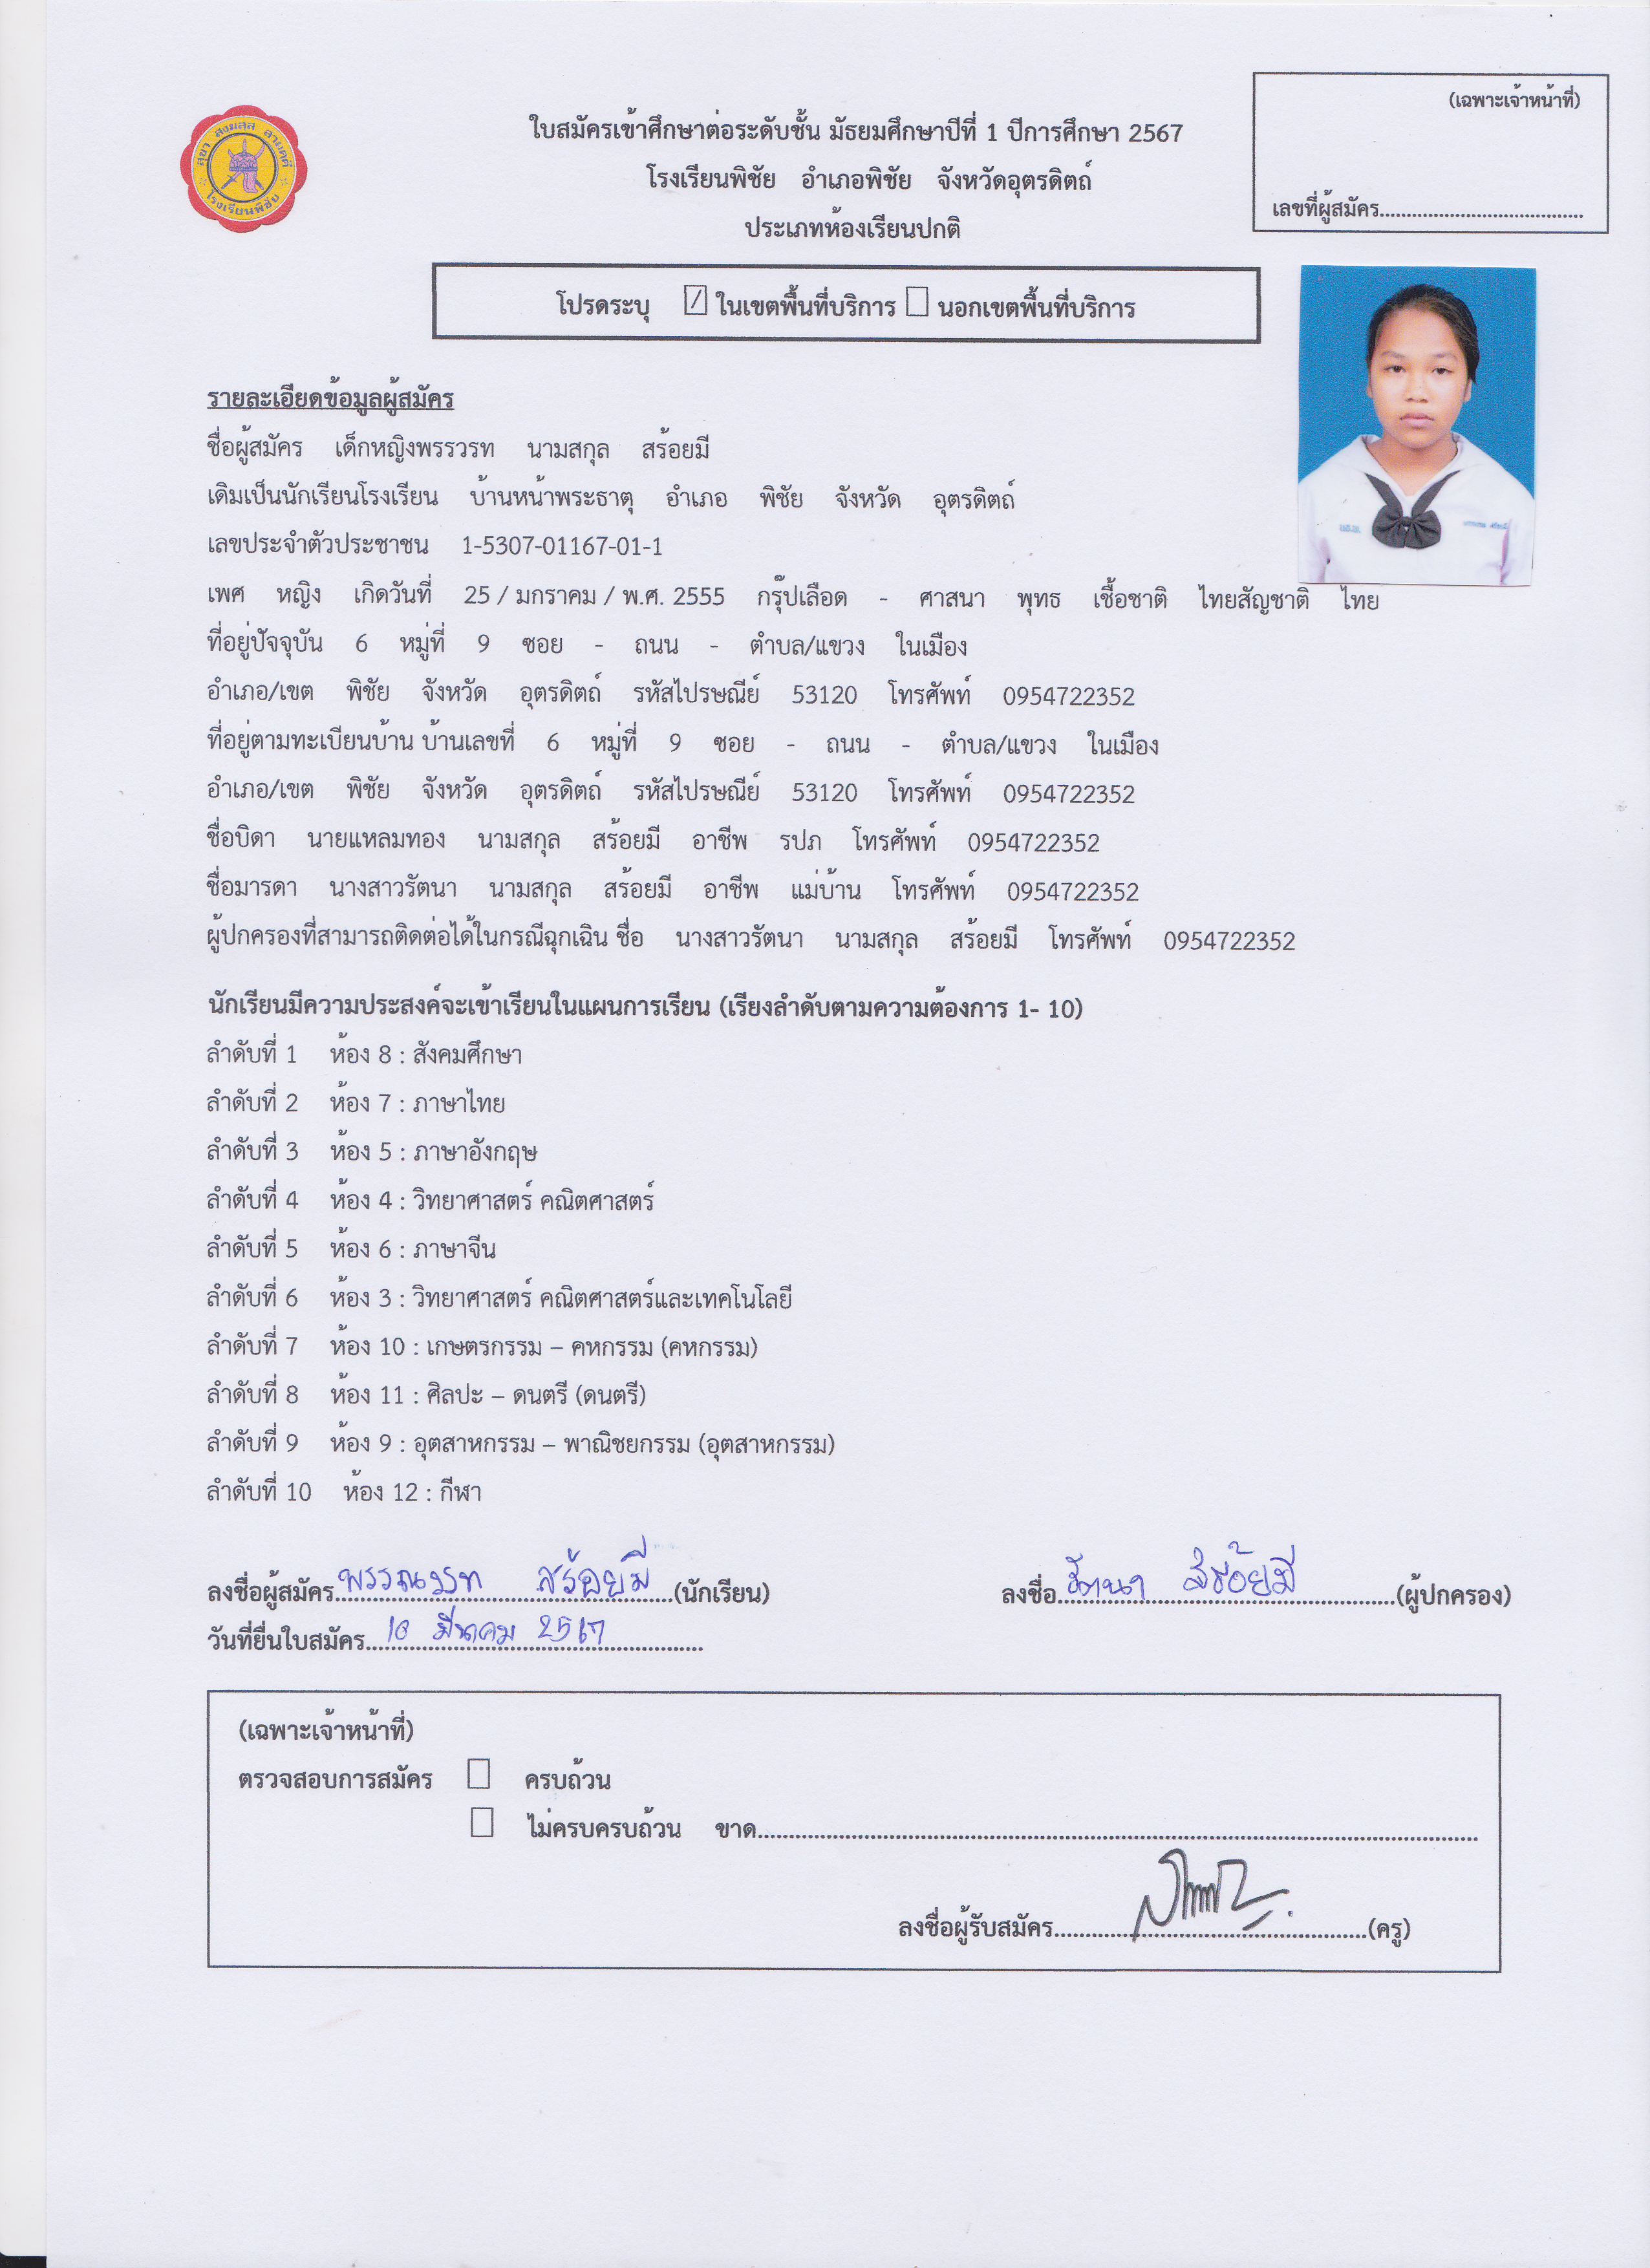 (เฉพาะเจ้าหน้าที่)
เลขที่ผู้สมัคร
โรงเรียนพิชัย
ใบสมัครเข้าศึกษาต่อระดับชั้น มัธยมศึกษาปีที่ 1 ปีการศึกษา 2567
โรงเรียนพิชัย อำเภอพิชัย จังหวัดอุตรดิตถ์
ประเภทห้องเรียนปกติ
โปรดระบุ ในเขตพื้นที่บริการ นอกเขตพื้นที่บริการ
รายละเอียดข้อมูลผู้สมัคร
ชื่อผู้สมัคร เด็กหญิงพรรวรท นามสกุล สร้อยมี
เดิมเป็นนักเรียนโรงเรียน บ้านหน้าพระธาตุ อำเภอ พิชัย จังหวัด อุตรดิตถ์
เลขประจำตัวประชาชน 1-5307-01167-01-1
เพศ หญิง เกิดวันที่ 25 / มกราคม / พ.ศ. 2555 กรุ๊ปเลือด - ศาสนา พุทธ เชื้อชาติ ไทยสัญชาติ ไทย
ที่อยู่ปัจจุบัน 6 หมู่ที่ 9 ซอย - ถนน - ตำบล/แขวง ในเมือง
อำเภอ/เขต พิชัย จังหวัด อุตรดิตถ์ รหัสไปรษณีย์ 53120 โทรศัพท์ 0954722352
ที่อยู่ตามทะเบียนบ้าน บ้านเลขที่ 6 หมู่ที่ 9 ซอย - ถนน - ตำบล/แขวง ในเมือง
อำเภอ/เขต พิชัย จังหวัด อุตรดิตถ์ รหัสไปรษณีย์ 53120 โทรศัพท์ 0954722352
ชื่อบิดา นายแหลมทอง นามสกุล สร้อยมี อาชีพ รปภ โทรศัพท์ 0954722352
ชื่อมารดา นางสาวรัตนา นามสกุล สร้อยมี อาชีพ แม่บ้าน โทรศัพท์ 0954722352
ผู้ปกครองที่สามารถติดต่อได้ในกรณีฉุกเฉิน ชื่อ นางสาวรัตนา นามสกุล สร้อยมี โทรศัพท์ 0954722352
นักเรียนมีความประสงค์จะเข้าเรียนในแผนการเรียน (เรียงลำดับตามความต้องการ 1- 10)
ลำดับที่ 1 ห้อง 8 : สังคมศึกษา
ลำดับที่ 2 ห้อง 7 : ภาษาไทย
ลำดับที่ 3 ห้อง 5 : ภาษาอังกฤษ
ลำดับที่ 4 ห้อง 4 : วิทยาศาสตร์ คณิตศาสตร์
ลำดับที่ 5 ห้อง 6 : ภาษาจีน
ลำดับที่ 6 ห้อง 3 : วิทยาศาสตร์ คณิตศาสตร์และเทคโนโลยี
ลำดับที่ 7 ห้อง 10 : เกษตรกรรม – คหกรรม (คหกรรม)
ลำดับที่ 8 ห้อง 11 : ศิลปะ – ดนตรี (ดนตรี)
ลำดับที่ 9 ห้อง 9 : อุตสาหกรรม – พาณิชยกรรม (อุตสาหกรรม)
ลำดับที่ 10 ห้อง 12 : กีฬา
ลงชื่อผู้สมัคร พรรณวรท สร้อยมี (นักเรียน) ลงชื่อ รัตนา สร้อยมี (ผู้ปกครอง)
วันที่ยื่นใบสมัคร 10 มีนาคม 2567
(เฉพาะเจ้าหน้าที่)
ตรวจสอบการสมัคร ครบถ้วน
ไม่ครบครบถ้วน ขาด
ลงชื่อผู้รับสมัคร (ครู)